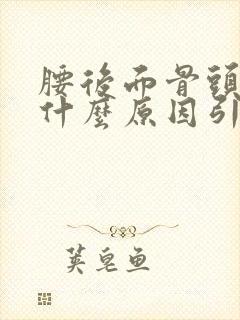 腰後面骨頭
什麼原因引
荚皂鱼